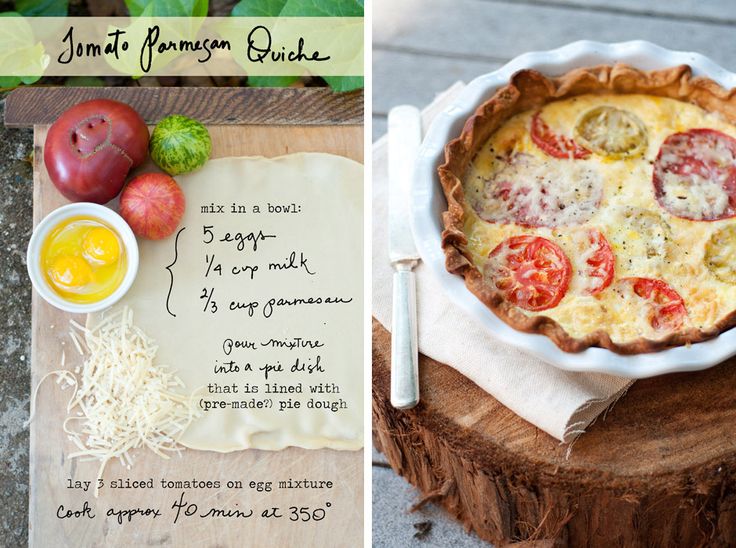 Tomato Parmesan Quiche
mix in a bowl:
5 eggs
1/4 cup milk
2/3 cup parmesan
pour mixture
into a pie dish
that is lined with
(pre-made?) pie dough
lay 3 sliced tomatoes on egg mixture
cook approx 40 min at 350°